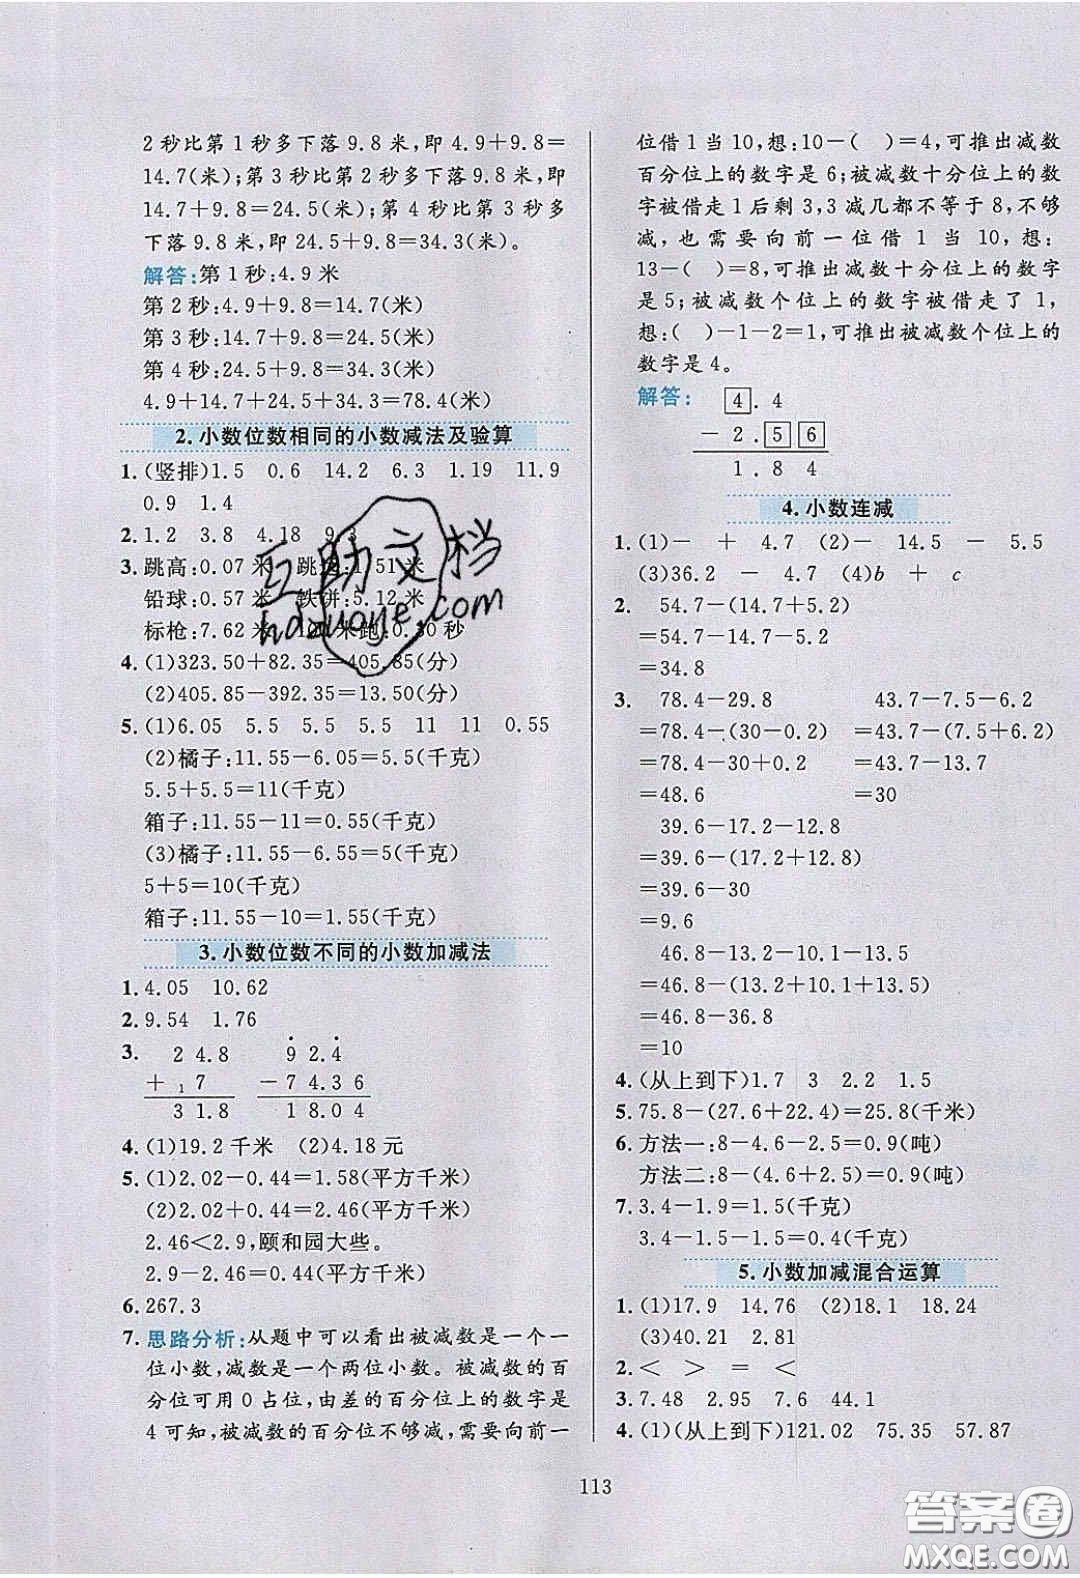 2 秒比第 1 秒多下落 9.8 米,即 4.9+9.8=
14.7(米);第 3 秒比第 2 秒多下落 9.8 米,即
14.7+9.8=24.5(米);第 4 秒比第 3 秒多
下落 9.8 米,即 24.5+9.8=34.3(米)。
解答:第 1 秒:4.9 米
第 2 秒:4.9+9.8=14.7(米)
第 3 秒:14.7+9.8=24.5(米)
第 4 秒:24.5+9.8=34.3(米)
4.9+14.7+24.5+34.3=78.4(米)
2. 小数位数相同的小数减法及验算
1. (竖排)1.5 0.6 14.2 6.3 1.19 11.9
0.9 1.4
2. 1.2 3.8 4.18 9.3
3. 跳高:0.07 米 跳远:1.51 米
铅球:0.57 米 铁饼:5.12 米
标枪:7.62 米 米跑:0.30 秒
4. (1)323.50+82.35=405.85(分)
(2)405.85-392.35=13.50(分)
5. (1)6.05 5.5 5.5 11 11 0.55
(2)橘子:11.55-6.05=5.5(千克)
5.5+5.5=11(千克)
箱子:11.55-11=0.55(千克)
(3)橘子:11.55-6.55=5(千克)
5+5=10(千克)
箱子:11.55-10=1.55(千克)
3. 小数位数不同的小数加减法
1. 4.05 10.62
2. 9.54 1.76
3. 2 4.8 9 2.4
+ 1 7 - 7 4.3 6
3 1.8 1 8.0 4
4. (1)19.2 千米 (2)4.18 元
5. (1)2.02-0.44=1.58(平方千米)
(2)2.02+0.44=2.46(平方千米)
2.46<2.9,颐和园大些。
2.9-2.46=0.44(平方千米)
6. 267.3
7. 思路分析:从题中可以看出被减数是一个一
位小数,减数是一个两位小数。被减数的百
分位可用 0 占位,由差的百分位上的数字是
4 可知,被减数的百分位不够减,需要向前一
位借 1 当 10,想:10-( )=4,可推出减数
百分位上的数字是 6;被减数十分位上的数
字被借走 1 后剩 3,3 减几都不等于 8,不够
减,也需要向前一位借 1 当 10,想:
13-( )=8,可推出减数十分位上的数字
是 5;被减数个位上的数字被借走了 1,
想:( )-1-2=1,可推出被减数个位上的
数字是 4。
解答: 4.4
- 2.5 6
1.8 4
4. 小数连减
1. (1)- + 4.7 (2)- 14.5 - 5.5
(3)36.2 - 4.7 (4)b + c
2. 54.7-(14.7+5.2)
=54.7-14.7-5.2
=34.8
3. 78.4-29.8 43.7-7.5-6.2
=78.4-(30-0.2) =43.7-(7.5+6.2)
=78.4-30+0.2 =43.7-13.7
=48.6 =30
39.6-17.2-12.8
=39.6-(17.2+12.8)
=39.6-30
=9.6
46.8-13.2-10.1-13.5
=46.8-(13.2+10.1+13.5)
=46.8-36.8
=10
4. (从上到下)1.7 3 2.2 1.5
5. 75.8-(27.6+22.4)=25.8(千米)
6. 方法一:8-4.6-2.5=0.9(吨)
方法二:8-(4.6+2.5)=0.9(吨)
7. 3.4-1.9=1.5(千克)
3.4-1.5-1.5=0.4(千克)
5. 小数加减混合运算
1. (1)17.9 14.76 (2)18.1 18.24
(3)40.21 2.81
2. < > = <
3. 7.48 2.95 7.6 44.1
4. (1)(从上到下)121.02 75.35 57.87
113
互助文档
hdzuoye.com
答案圈
MXQE.COM